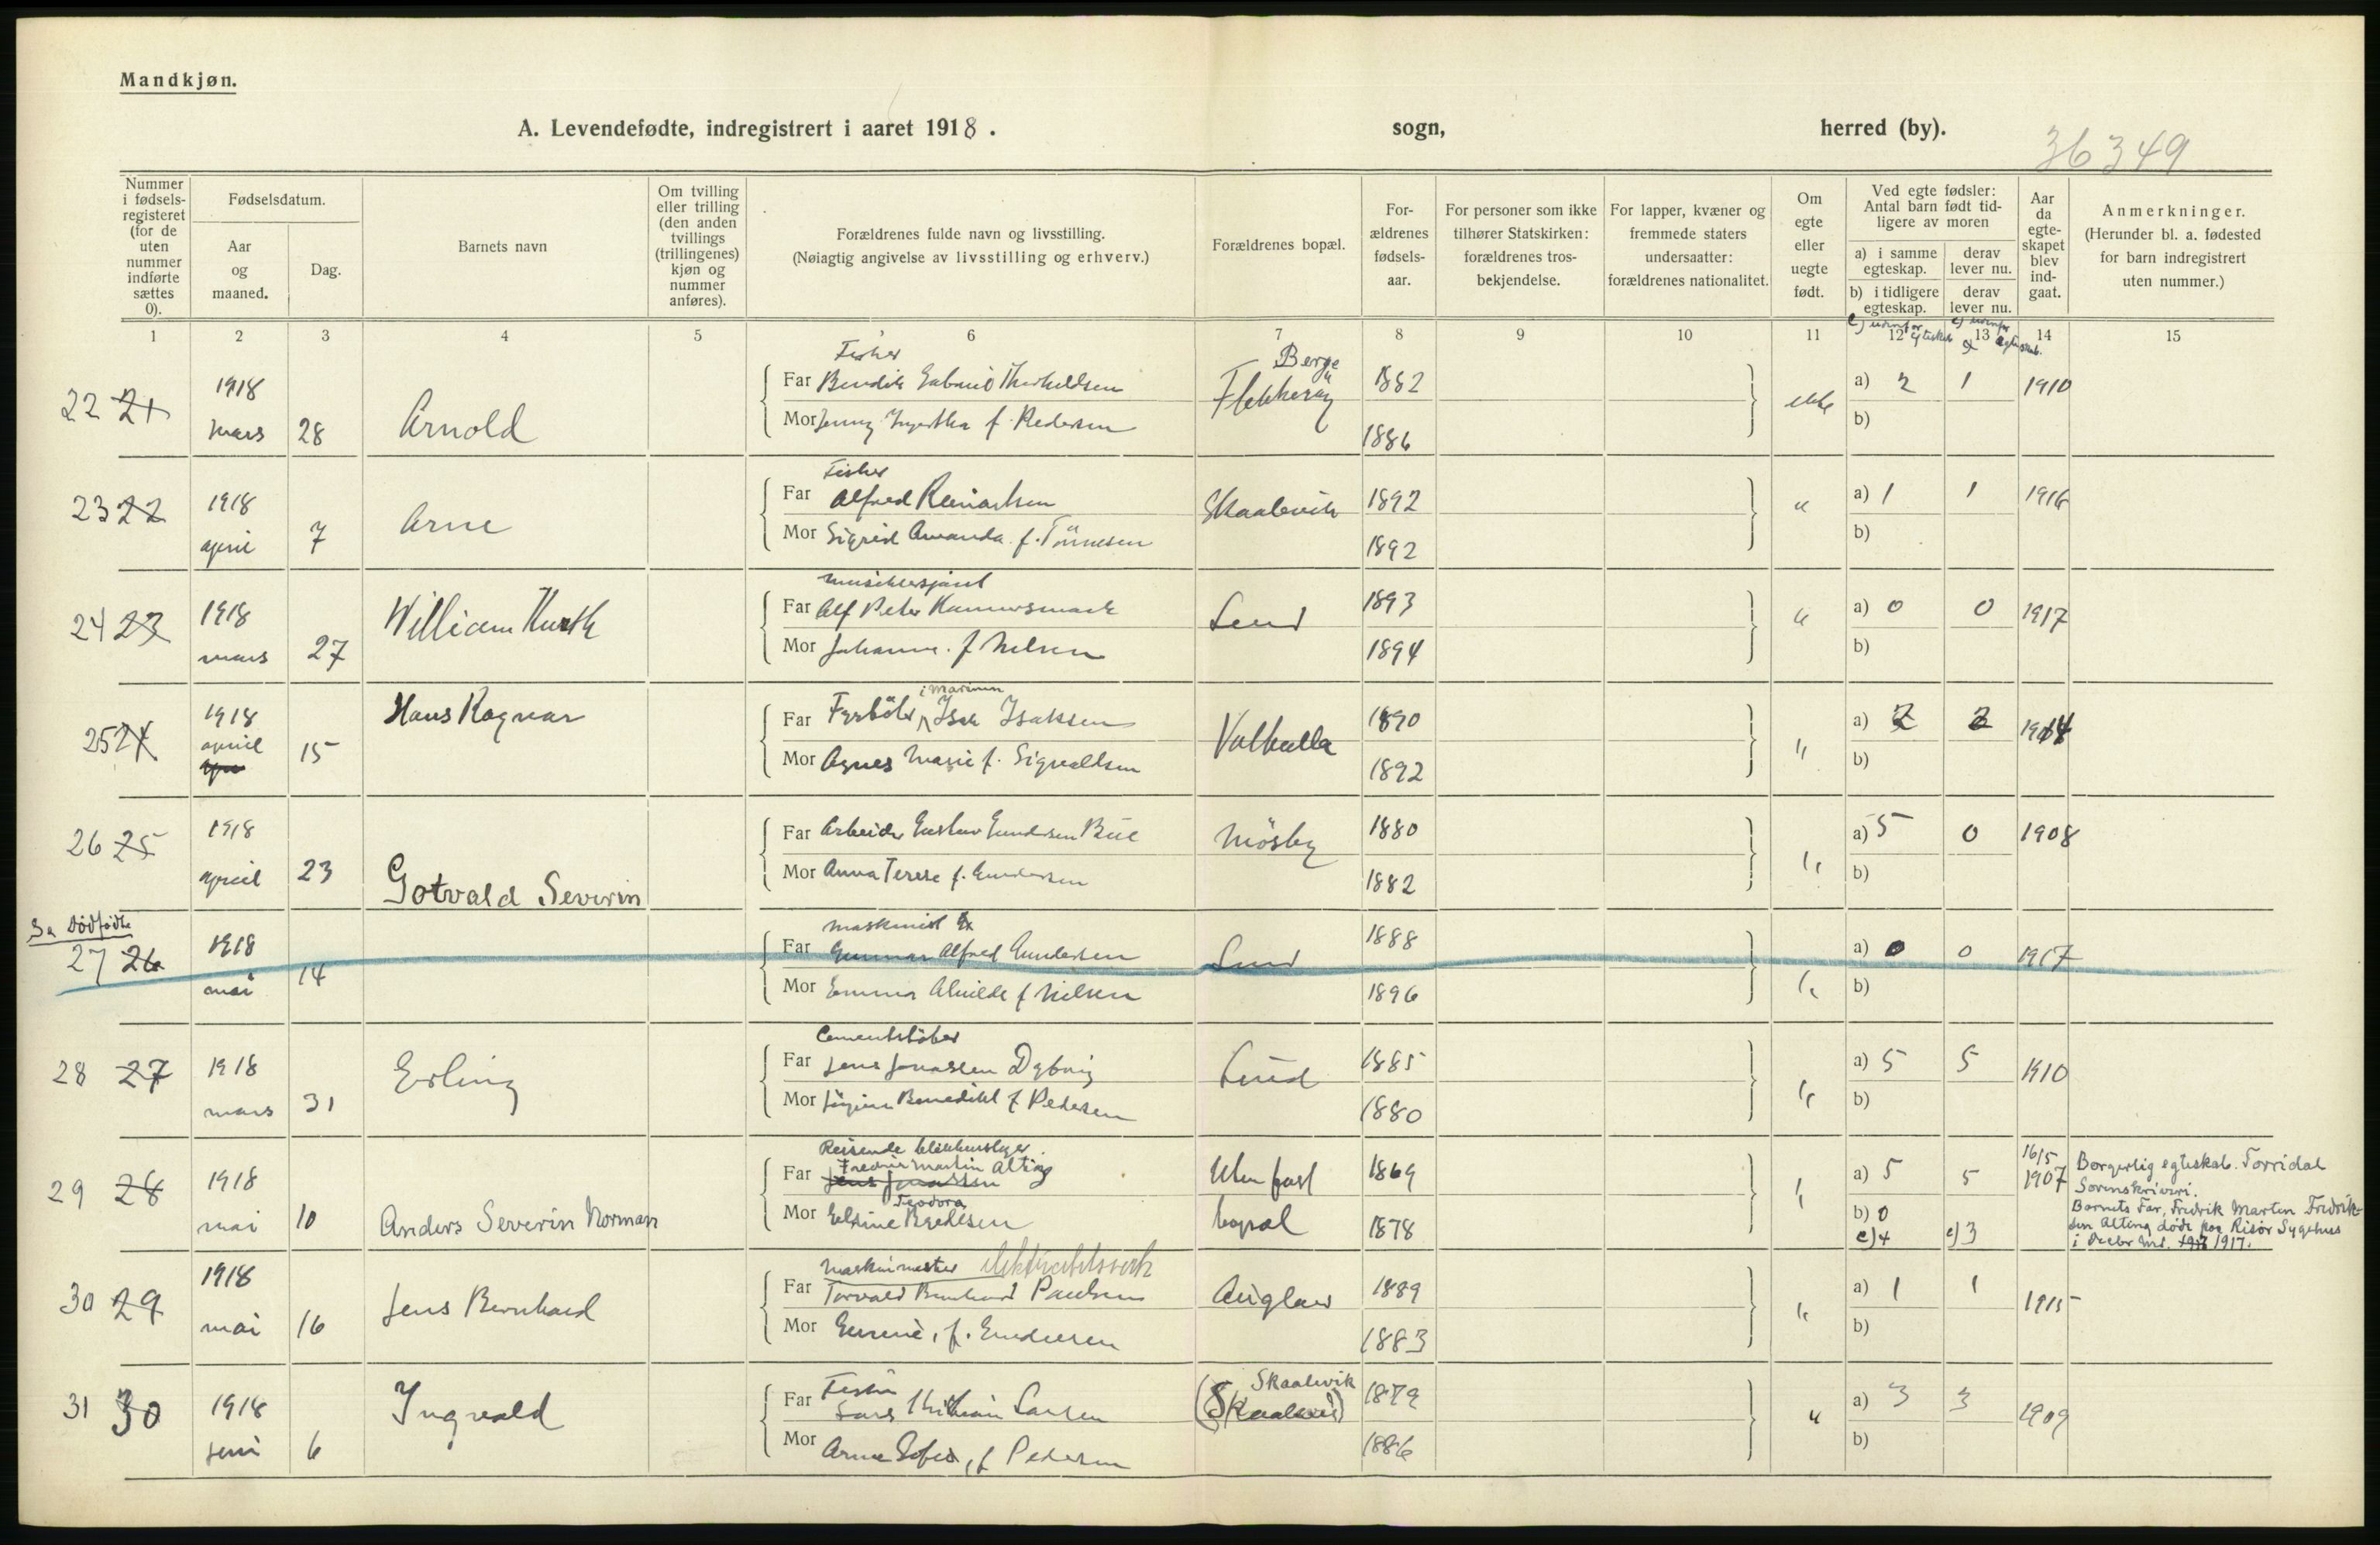 Mandkjøn.
A. Levendefødte, indregistrert i aaret 1918. sogn, herred (by).
36349
Nummer i fødsels-registeret (for de uten nummer indførte sættes 0).
Fødselsdatum.
Aar og maaned.
Dag.
Barnets navn
Om tvilling eller trilling (den anden tvillings (trillingenes) kjøn og nummer anføres).
Forældrenes fulde navn og livsstilling.
(Nøiagtig angivelse av livsstilling og erhverv.)
Forældrenes bopæl.
For-ældrenes fødsels-aar.
For personer som ikke tilhører Statskirken: forældrenes tros-bekjendelse.
For lapper, kvæner og fremmede staters undersaatter: forældrenes nationalitet.
Om egte eller uegte født.
Ved egte fødsler: Antal barn født tid-ligere av moren
a) i samme egteskap.
derav lever nu.
b) i tidligere egteskap.
derav lever nu.
Aar da egte-skapet blev ind-gaat.
Anmerkninger.
(Herunder bl. a. fødested for barn indregistrert uten nummer.)
1 2 3 4 5 6 7 8 9 10 11 12 13 14 15
Fisker
Berge
22 21 1918 Far 1882 a) 2 1 1910
Flekkerøy
mars 28 Arnold Mor Jenny f. Pedersen 1886 ekte b)
Fisker
23 22 1918 Far Alfred Reinertsen Skaalevik 1892 " a) 1 1 1916
april 7 Arne Mor Sigrid Amanda f. Tönnesen 1892 b)
24 23 1918 William Far Alf Peter Lund 1893 " a) 0 0 1917
mars 27 Mor Johanne f. Nilsen 1894 b)
i Marinen
25 24 1918 Hans Ragnar Far Fyrböter Isak Isaksen Valhalla 1890 " a) 2 2 1914
april 15 Mor Agnes Marie f. Sigvaldsen 1892 b)
26 25 1918 Far Arbeider Gustav Gundersen Mösby 1880 " a) 5 0 1908
april 23 Gotvald Severin Mor Anna Terese f. Gundersen 1882 b)
Se Dödfödte
maskinist
27 26 1918 Far Gunnar Alfred Gundersen Lund 1888 " a) 0 0 1917
mai 14 Mor Emma Alvilde f. Nilsen 1896 b)
Cementstöber
28 27 1918 Erling Far Jens Jonassen Dybvig Lund 1885 " a) 5 5 1910
mars 31 Mor Benedikt f. Pedersen 1880 b)
Reisende blikkenslager
Fredrik Martin Alting
29 28 1918 Far Jens Jonassen Uten fast 1869 " a) 5 5 16/5 1907 Borgerlig egteskab. Torridal Sorenskriveri.
Teodora
mai 10 Anders Severin Norman Mor bopæl 1878 b) 0 Barnets Far, Fredrik Martin Fredrik-
c) 4 c) 3 sen Alting döde paa Risör Sygehus
i 1917.
Maskinmester elektricitetsverk
30 29 1918 Jens Bernhard Far Torvald Bernhard Paulsen 1889 " a) 1 1 1915
mai 16 Mor f. Gundersen 1883 b)
Fisker
Skaalevik
31 30 1918 Ingvald Far Lars Larsen (Skaalevik) 1879 " a) 3 3 1909
juni 6 Mor Sofie, f. Pedersen 1886 b)